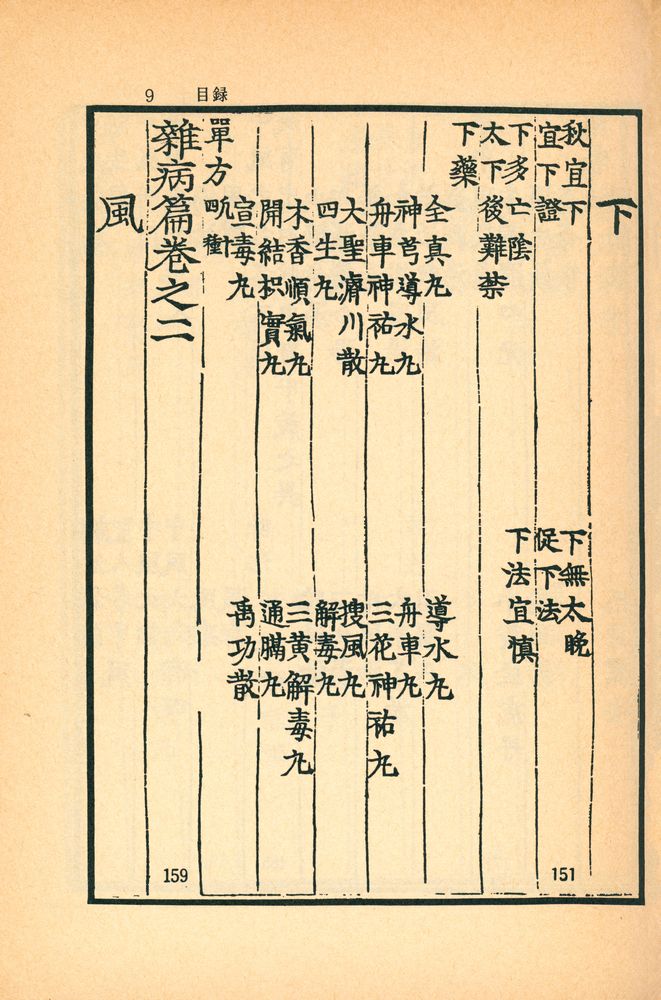 9 目録
下
秋宜下 下無太晩
宜下證 促下法
下多亡陰 下法宜慎
太下後難禁
下藥
全真丸 導水丸
神芎導水丸 舟車丸
舟車神祐丸 三花神祐丸
大聖濬川散 搜風丸
四生丸 解毒丸
木香順氣丸 三黄解毒丸
開結枳實丸 通膈丸
宣毒丸 禹功散
單方
雜病篇卷之二
風
151
159